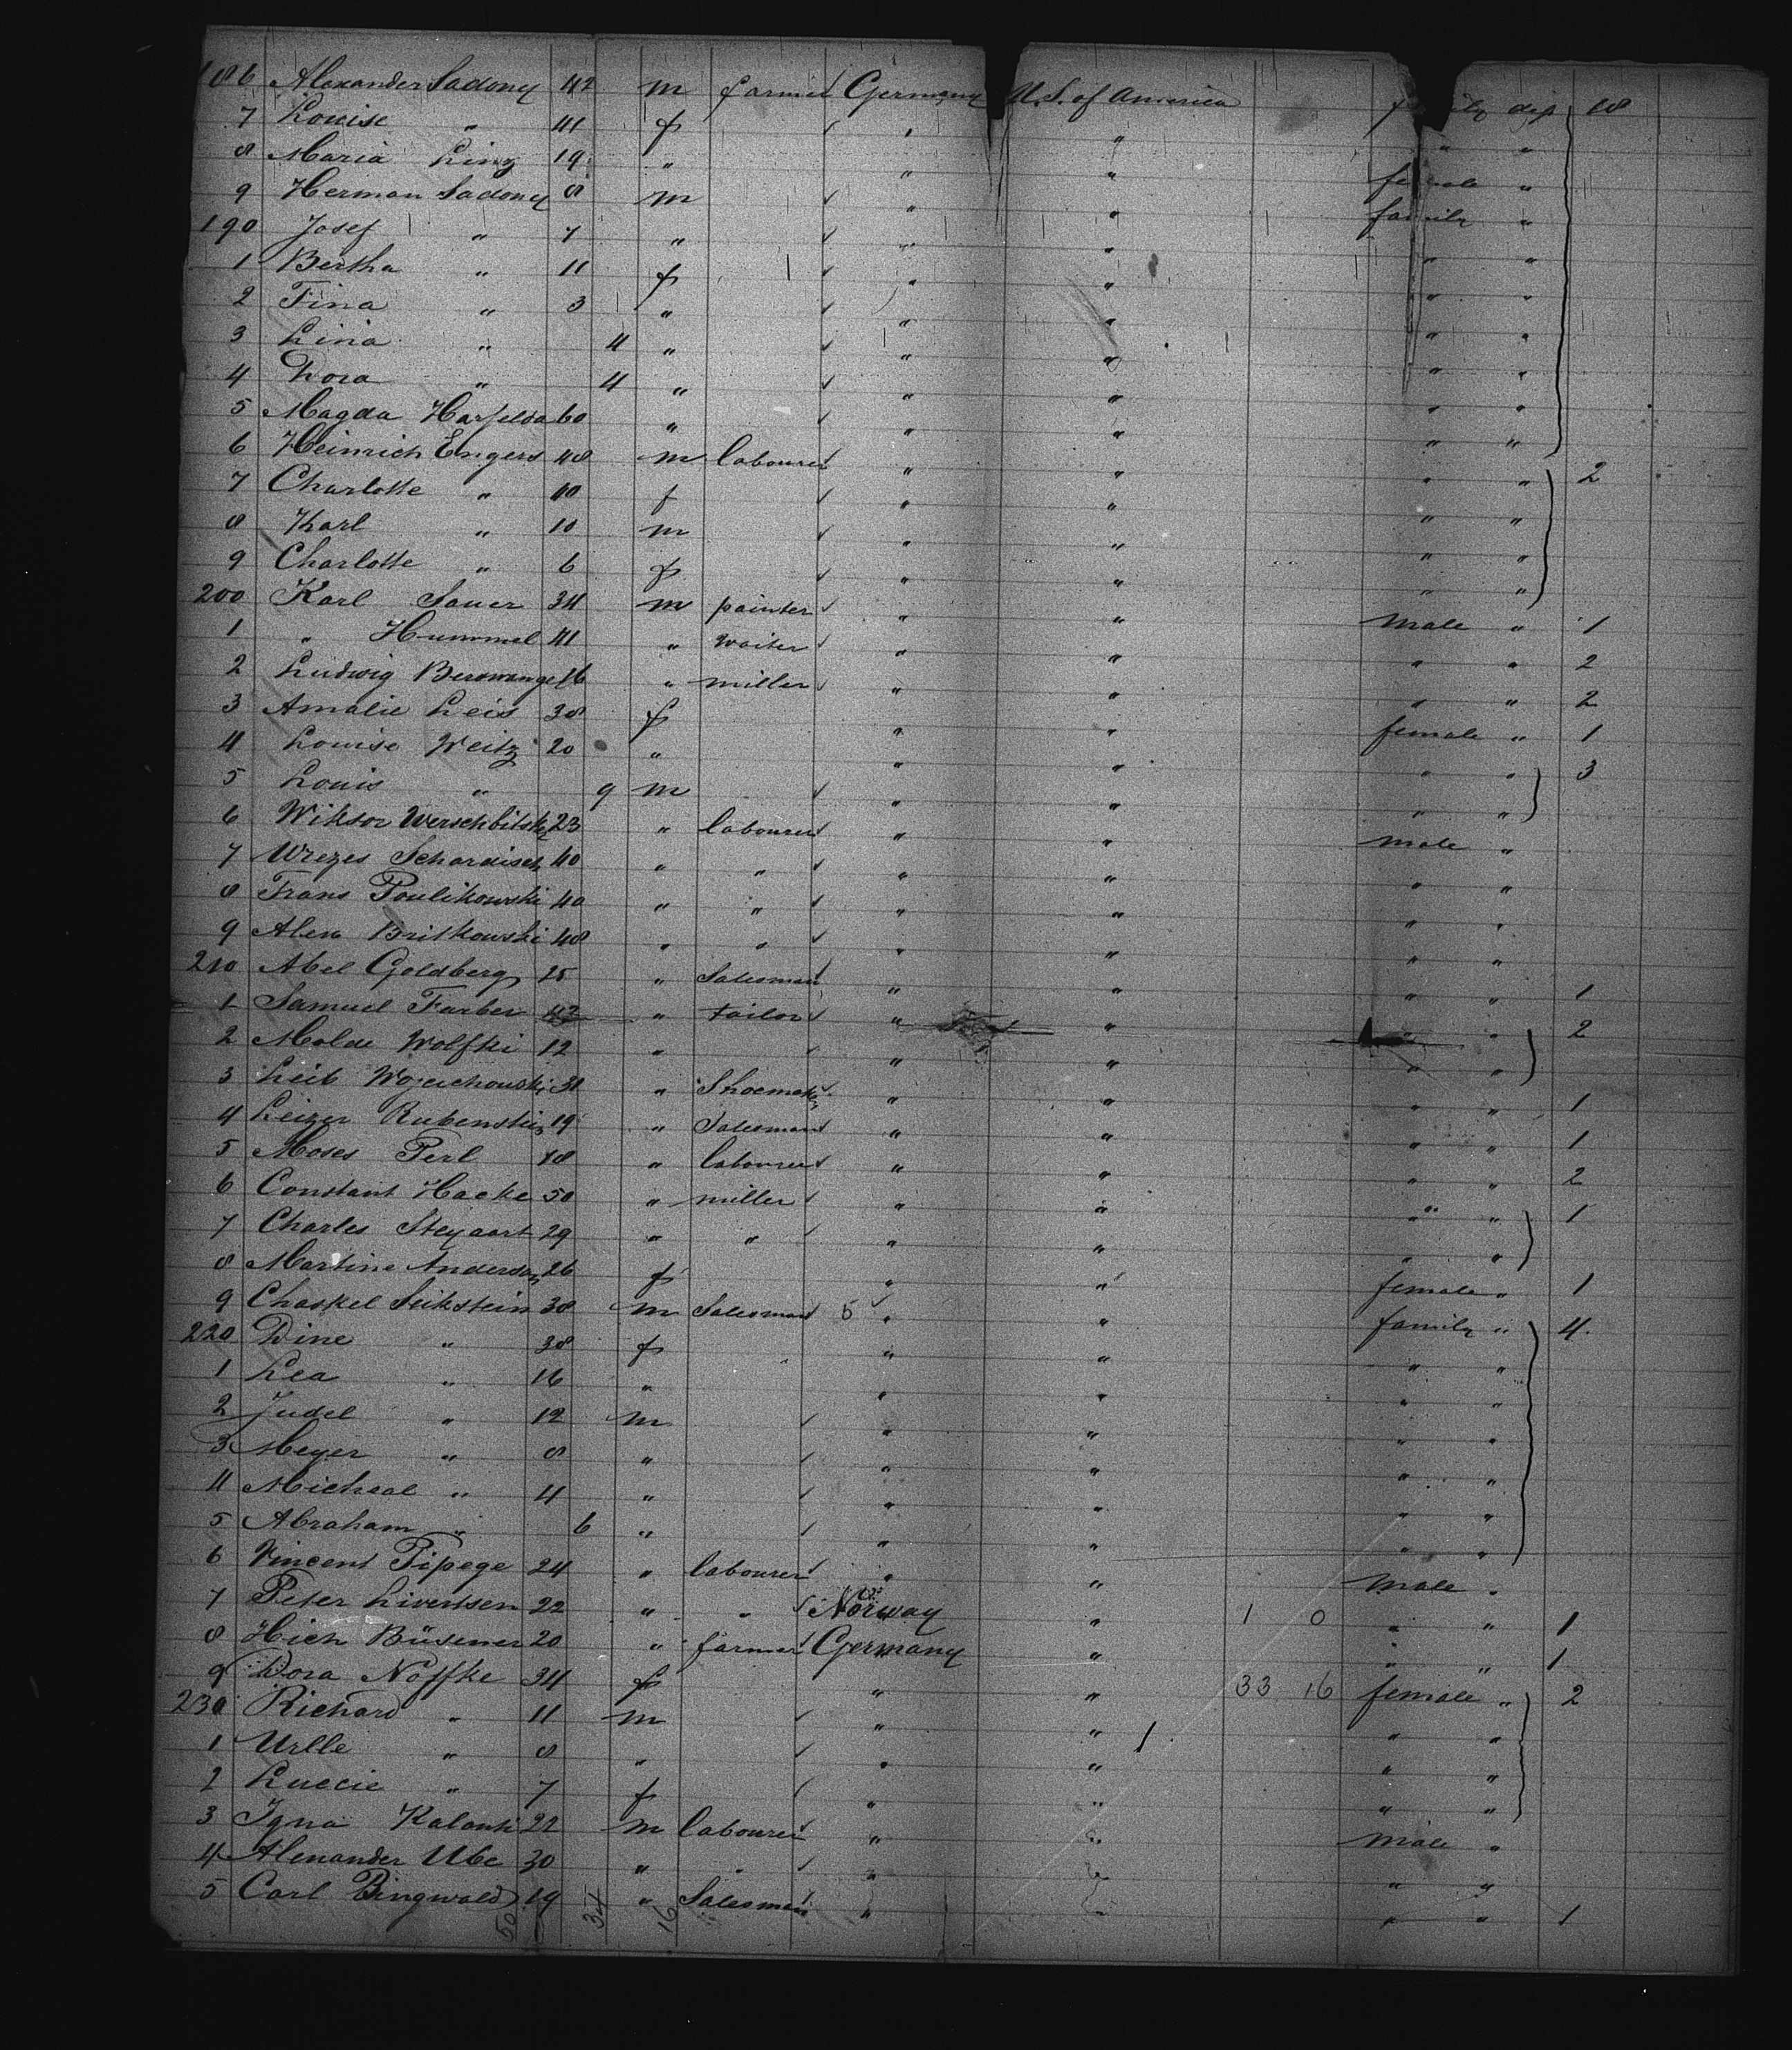 186 Alexander Sadony 42 m farmer Germany U.S. of America family dep 10
7 Louise " 41 f " " " "
8 Maria Linz 19 " " " female "
9 Herman Sadony 8 m " " family "
190 Josef " 7 " " " " "
1 Bertha " 11 f " " " "
2 Tina " 3 " " " " "
3 Lina " 4 " " " " "
4 Dora " 4 " " " " "
5 Magda 60 " " " " "
6 Heinrich Engers 48 m labourer " " " " 2
7 Charlotte " f " " " "
8 Karl " 10 m " " " "
9 Charlotte " 6 f " " " "
200 Karl Sauer 34 m painter " " male " 1
1 " Hummel 41 " waiter " " " " 2
2 Ludwig Berswange 16 " miller " " " " 2
3 Amalie Leis 38 f " " female " 1
4 Louise Weitz 20 " " " " " 3
5 Louis " 9 m " " " "
6 Wiktor 23 " labourer " " male "
7 40 " " " " " "
8 Frans Poulikowski 40 " " " " " "
9 Alex Britkowski 48 " " " " " "
210 Abel Goldberg 25 " Salesman " " " " 1
1 Samuel Farber 42 " tailor " " " " 2
2 Malde Wolfki 12 " " " " "
3 Leib 30 " Shoemaker " " " " 1
4 Leizer Rubenstein 19 " Salesman " " " " 1
5 Moses Perl 48 " labourer " " " " 2
6 Constant Hacke 50 " miller " " " " 1
7 Charles Steyaart 29 " " " " " "
8 Martine Anderson 26 f " " female " 1
9 Chaskel Seikstein 38 m Salesman 5 " " family " 4
220 Dine " 38 f " " " "
1 Lea " 16 " " " " "
2 Judel " 12 m " " " "
3 Meyer " 8 " " " " "
4 Micheal " 4 " " " " "
5 Abraham " 6 " " " " "
6 Vincent Pipege 24 " labourer " " male "
7 Peter Livertsen 22 " " Norway " 1 0 " " 1
8 Hich Büsener 20 " farmer Germany " " " 1
9 Dora Noffke 34 f " " 33 16 female " 2
230 Richard " 11 m " " 1 " "
1 Urlle " 8 " " " " "
2 Luccie " 7 f " " " "
3 Igna Kalanti 22 m labourer " " male "
4 Alexander Ube 30 " " " " " "
5 Carl Bingwald 19 " Salesman " " " " 1
50 34 16